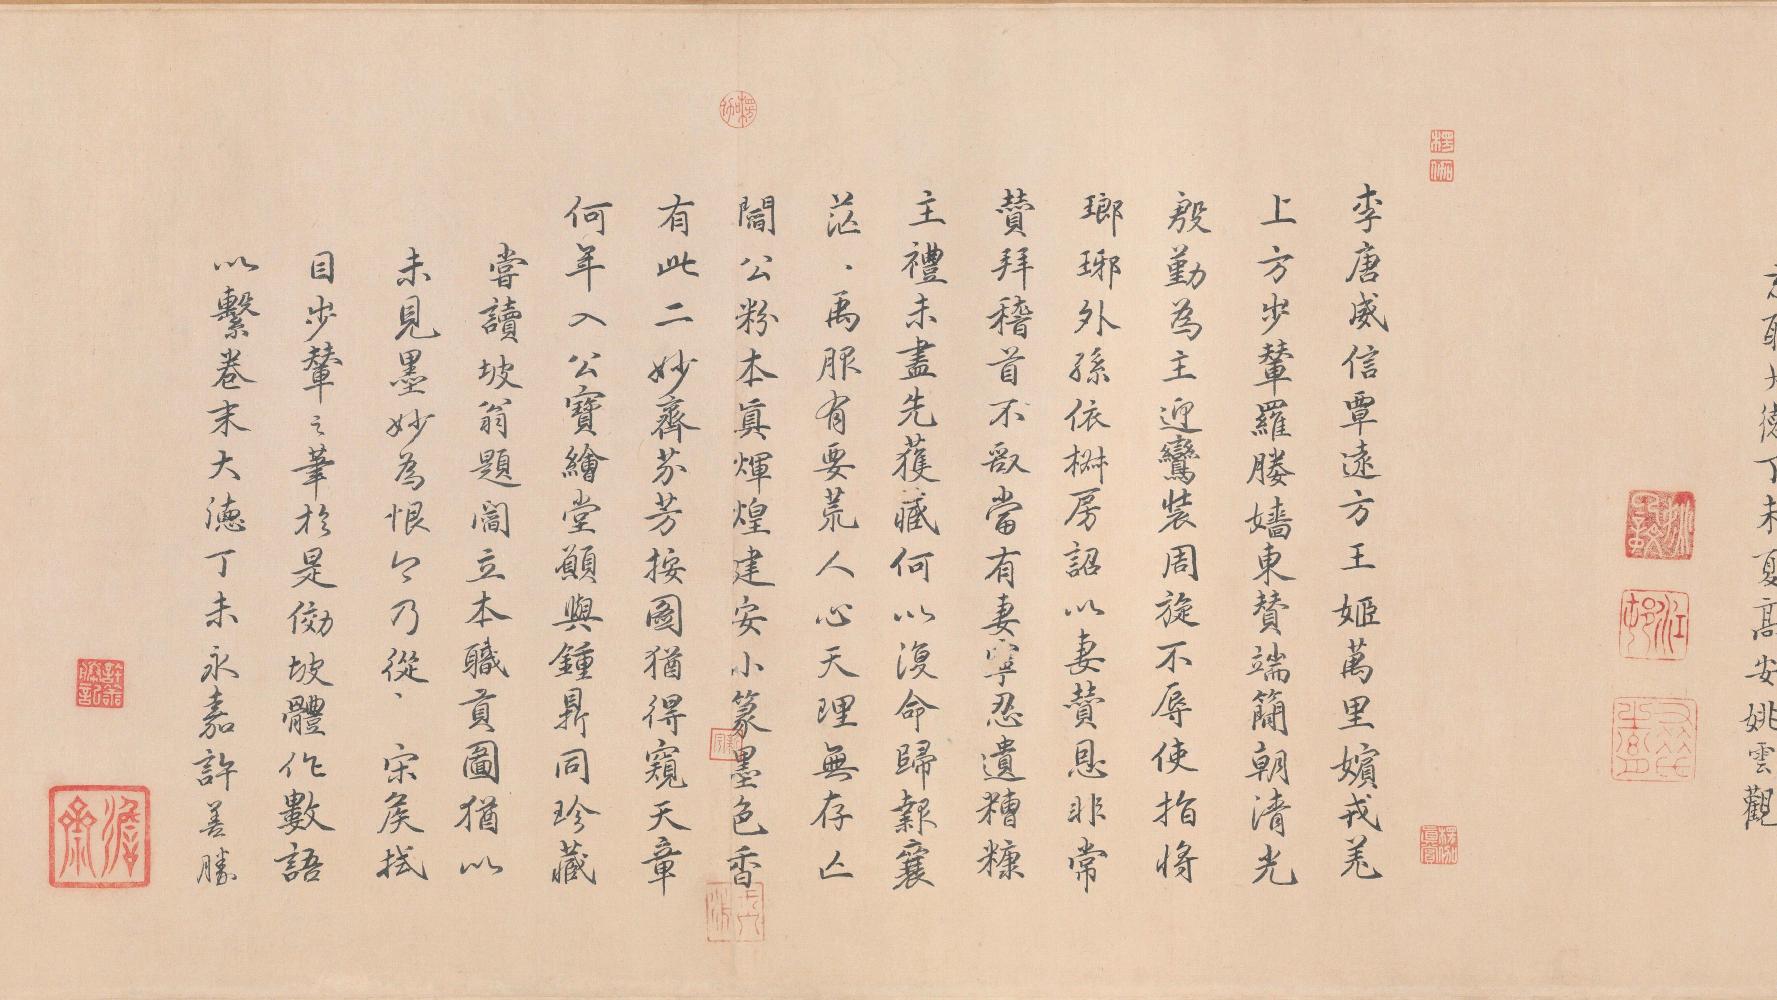 李唐威信覃遠方王姬萬里嬪戎羌
上方步輦羅媵嬙東贊端簡朝清光
殷勤為主迎鸞裝周旋不辱使指將
瑯琊外孫依椒房詔以妻贊恩非常
贊拜稽首不敢當有妻寧忍遺糟糠
主禮未盡先獲臧何以復命歸報襄
茫、禹服有要荒人心天理無存亡
閻公粉本真煇煌建安小篆墨色香
有此二妙齊芬芳按圖猶得窺天章
何年入公寶繪堂願與鍾鼎同珍藏
嘗讀坡翁題閻立本職貢圖猶以
未見墨妙為恨今乃從、宋矦拭
目步輦之筆於是傚坡體作數語
以繫卷末大德丁未永嘉許善勝
大德丁未夏高安姚雲觀